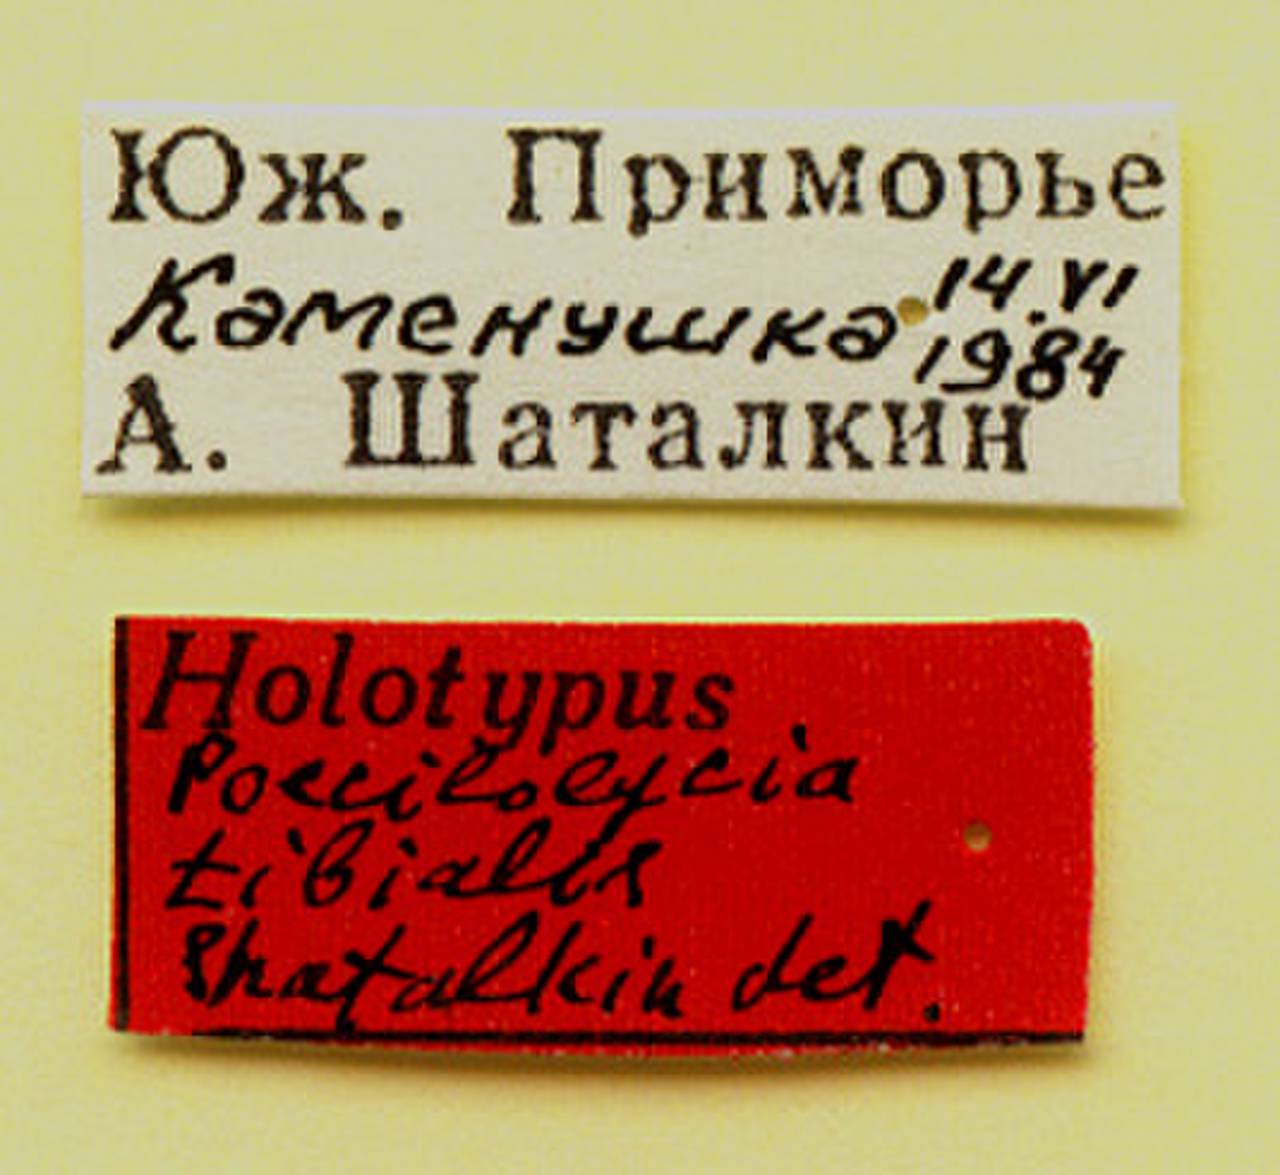 Юж. Приморье
Каменушка 14.VI
1984
А. Шаталкин
Holotypus
Poecilolycia
tibialis
Shatalkin det.